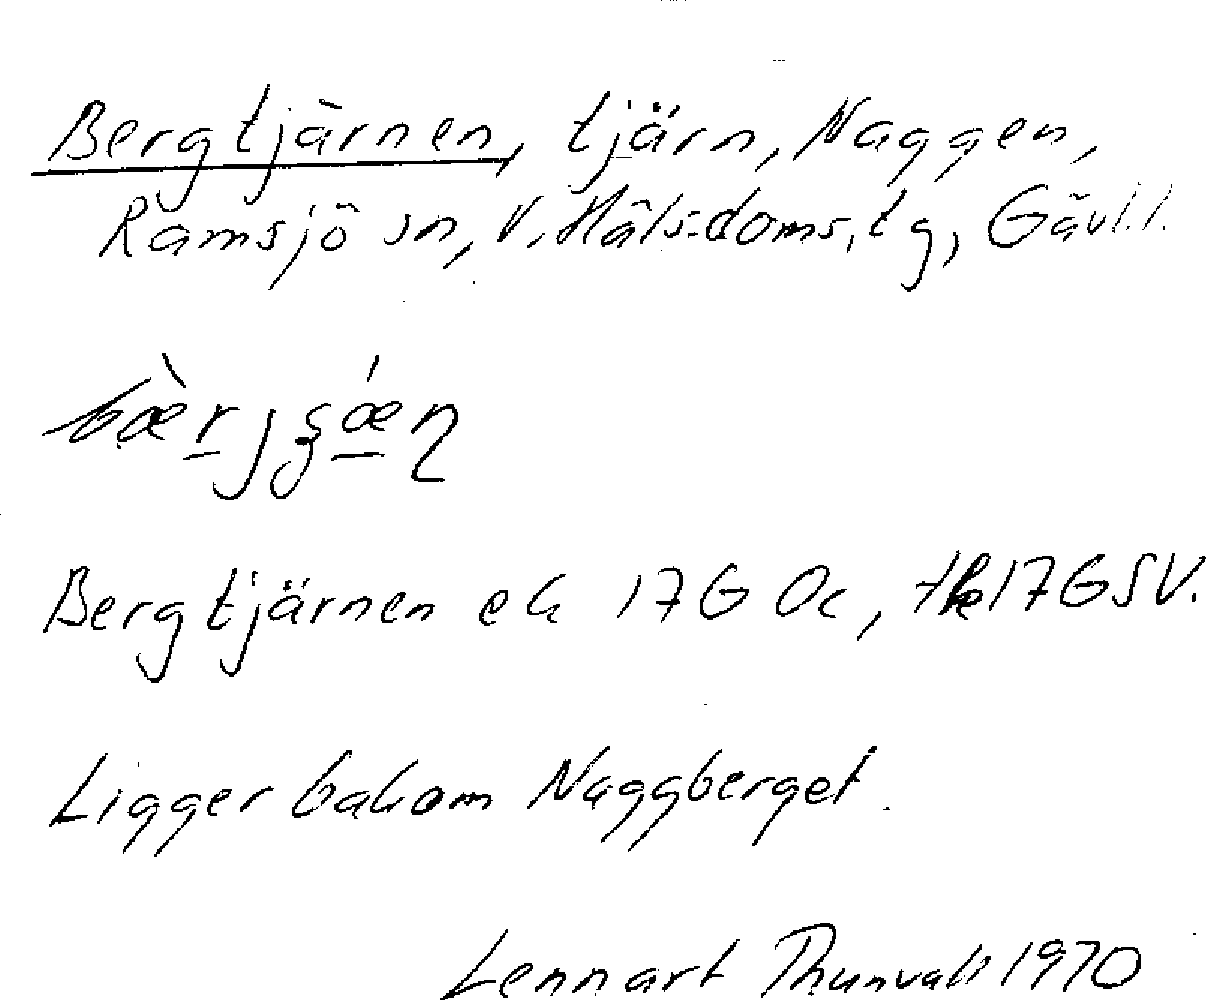 Bergtjärnen, tjärn, Naggen,
Ramsjö sn, V. Häls. doms. tg, Gävl.l.
Bergtjärnen ek 17G Oc, tk 17G SV.
Ligger bakom Naggberget.
Lennart Thunvall 1970